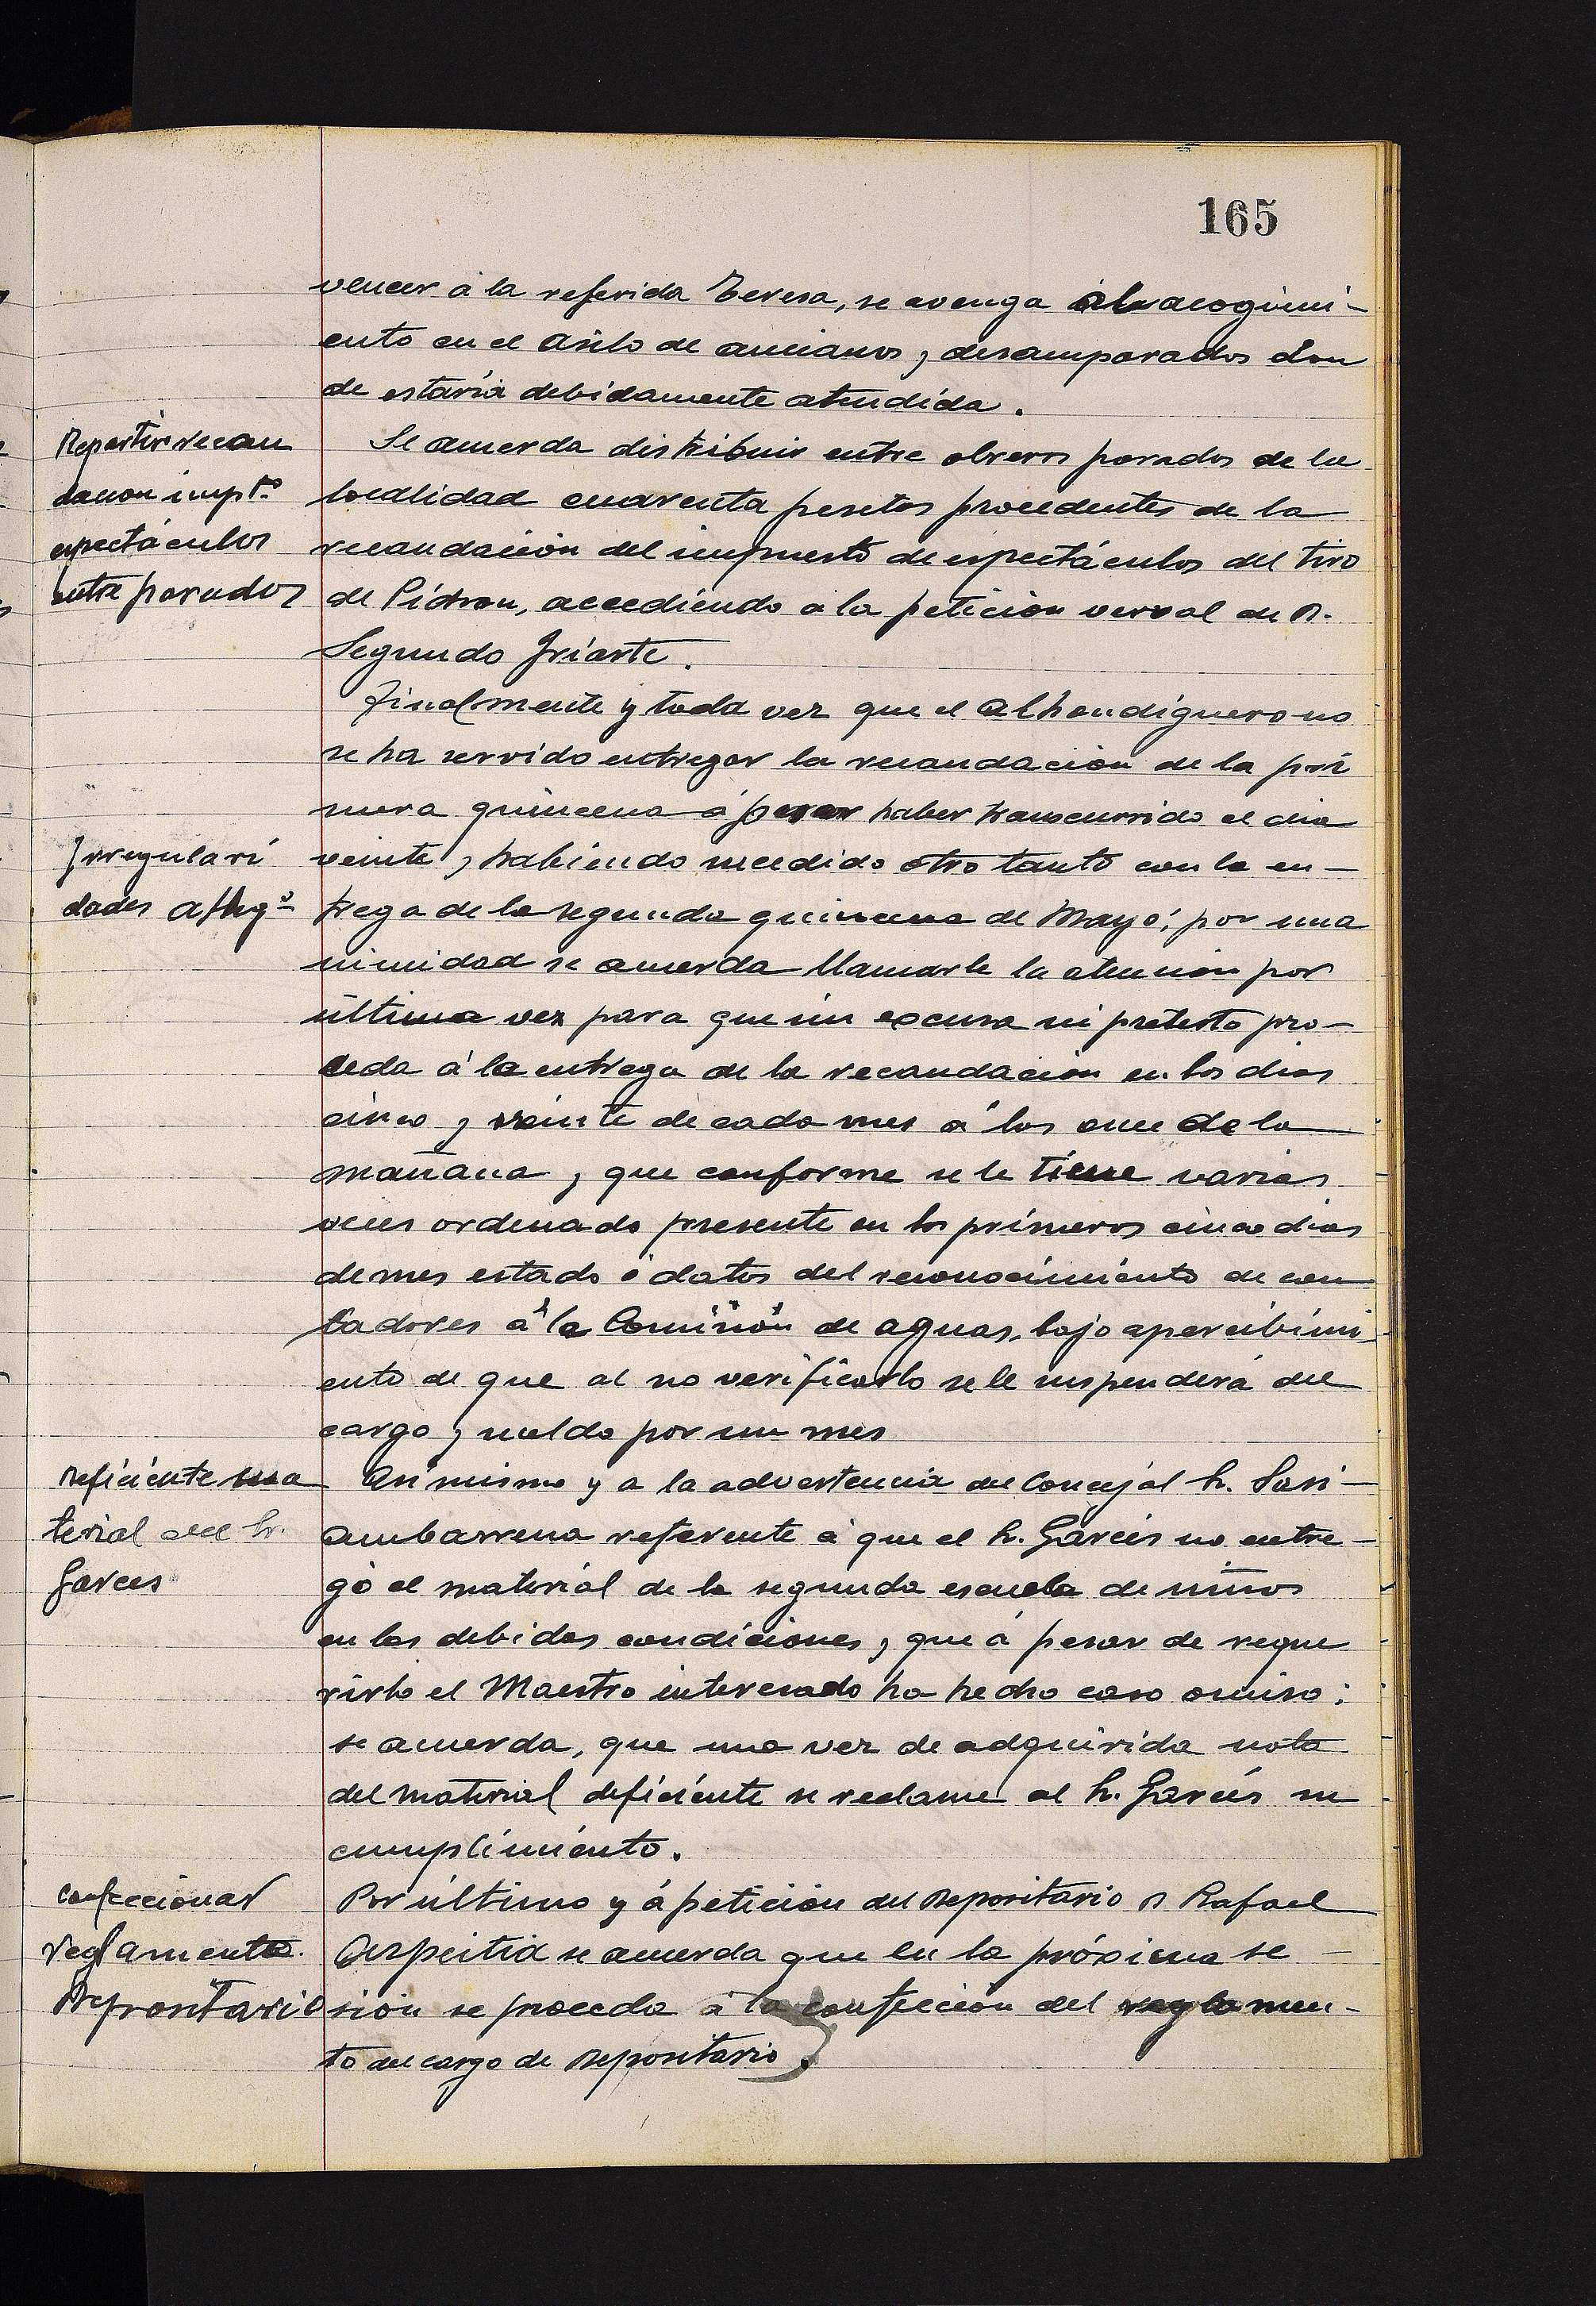 165
vencer á la referida Teresa, se avenga al acogimi-
ento en el Asilo de ancianos y desamparados don
de estaría debidamente atendida.
Repartir recau
dacion impto
espectáculos
entre parados
Se acuerda distribuir entre obreros parados de la
localidad cuarenta pesetas procedentes de la
recaudación del impuesto de espectáculos del tiro
de Pichon, accediendo a la petición verval de D.
Segundo Iriarte.
Finalmente y toda vez que el Alhondiguero no
se ha servido entregar la recaudación de la pri
mera quincena á pesar haber transcurrido el dia
Irregulari
dades Alhgo
veinte y habiendo sucedido otro tanto con la en-
trega de la segunda quincena de Mayo; por una
nimidad se acuerda llamarle la atencion por
última vez para que sin excusa ni pretesto pro-
ceda á la entrega de la recaudación en los dias
cinco y veinte de cada mes á las once de la
mañana y que conforme se le tiene varias
veces ordenado presente en los primeros cinco dias
de mes estado ó datos del reconocimiento de con
tadores á la Comisión de aguas, bajo apercibimi
ento de que al no verificarlo se le suspenderá del
cargo y sueldo por un mes
Deficiente ma
terial del Sr.
Garces
Asimismo y a la advertencia del Concejal Sr. Sasi-
ambarrena referente á que el Sr. Garcés no entre-
gó el material de la segunda escuela de niños
en las debidas condiciones y que á pesar de reque
rirlo el Maestro interesado ha hecho caso omiso:
se acuerda, que una vez de adquirida nota
del material deficiente se reclame al Sr. Garcés su
cumplimiento.
Confeccionar
reglamento
Depositario
Por último y á petición del Depositario D Rafael
Azpeitia se acuerda que en la próxima se-
sión se proceda á la confeccion del reglamen-
to del cargo de Depositario.